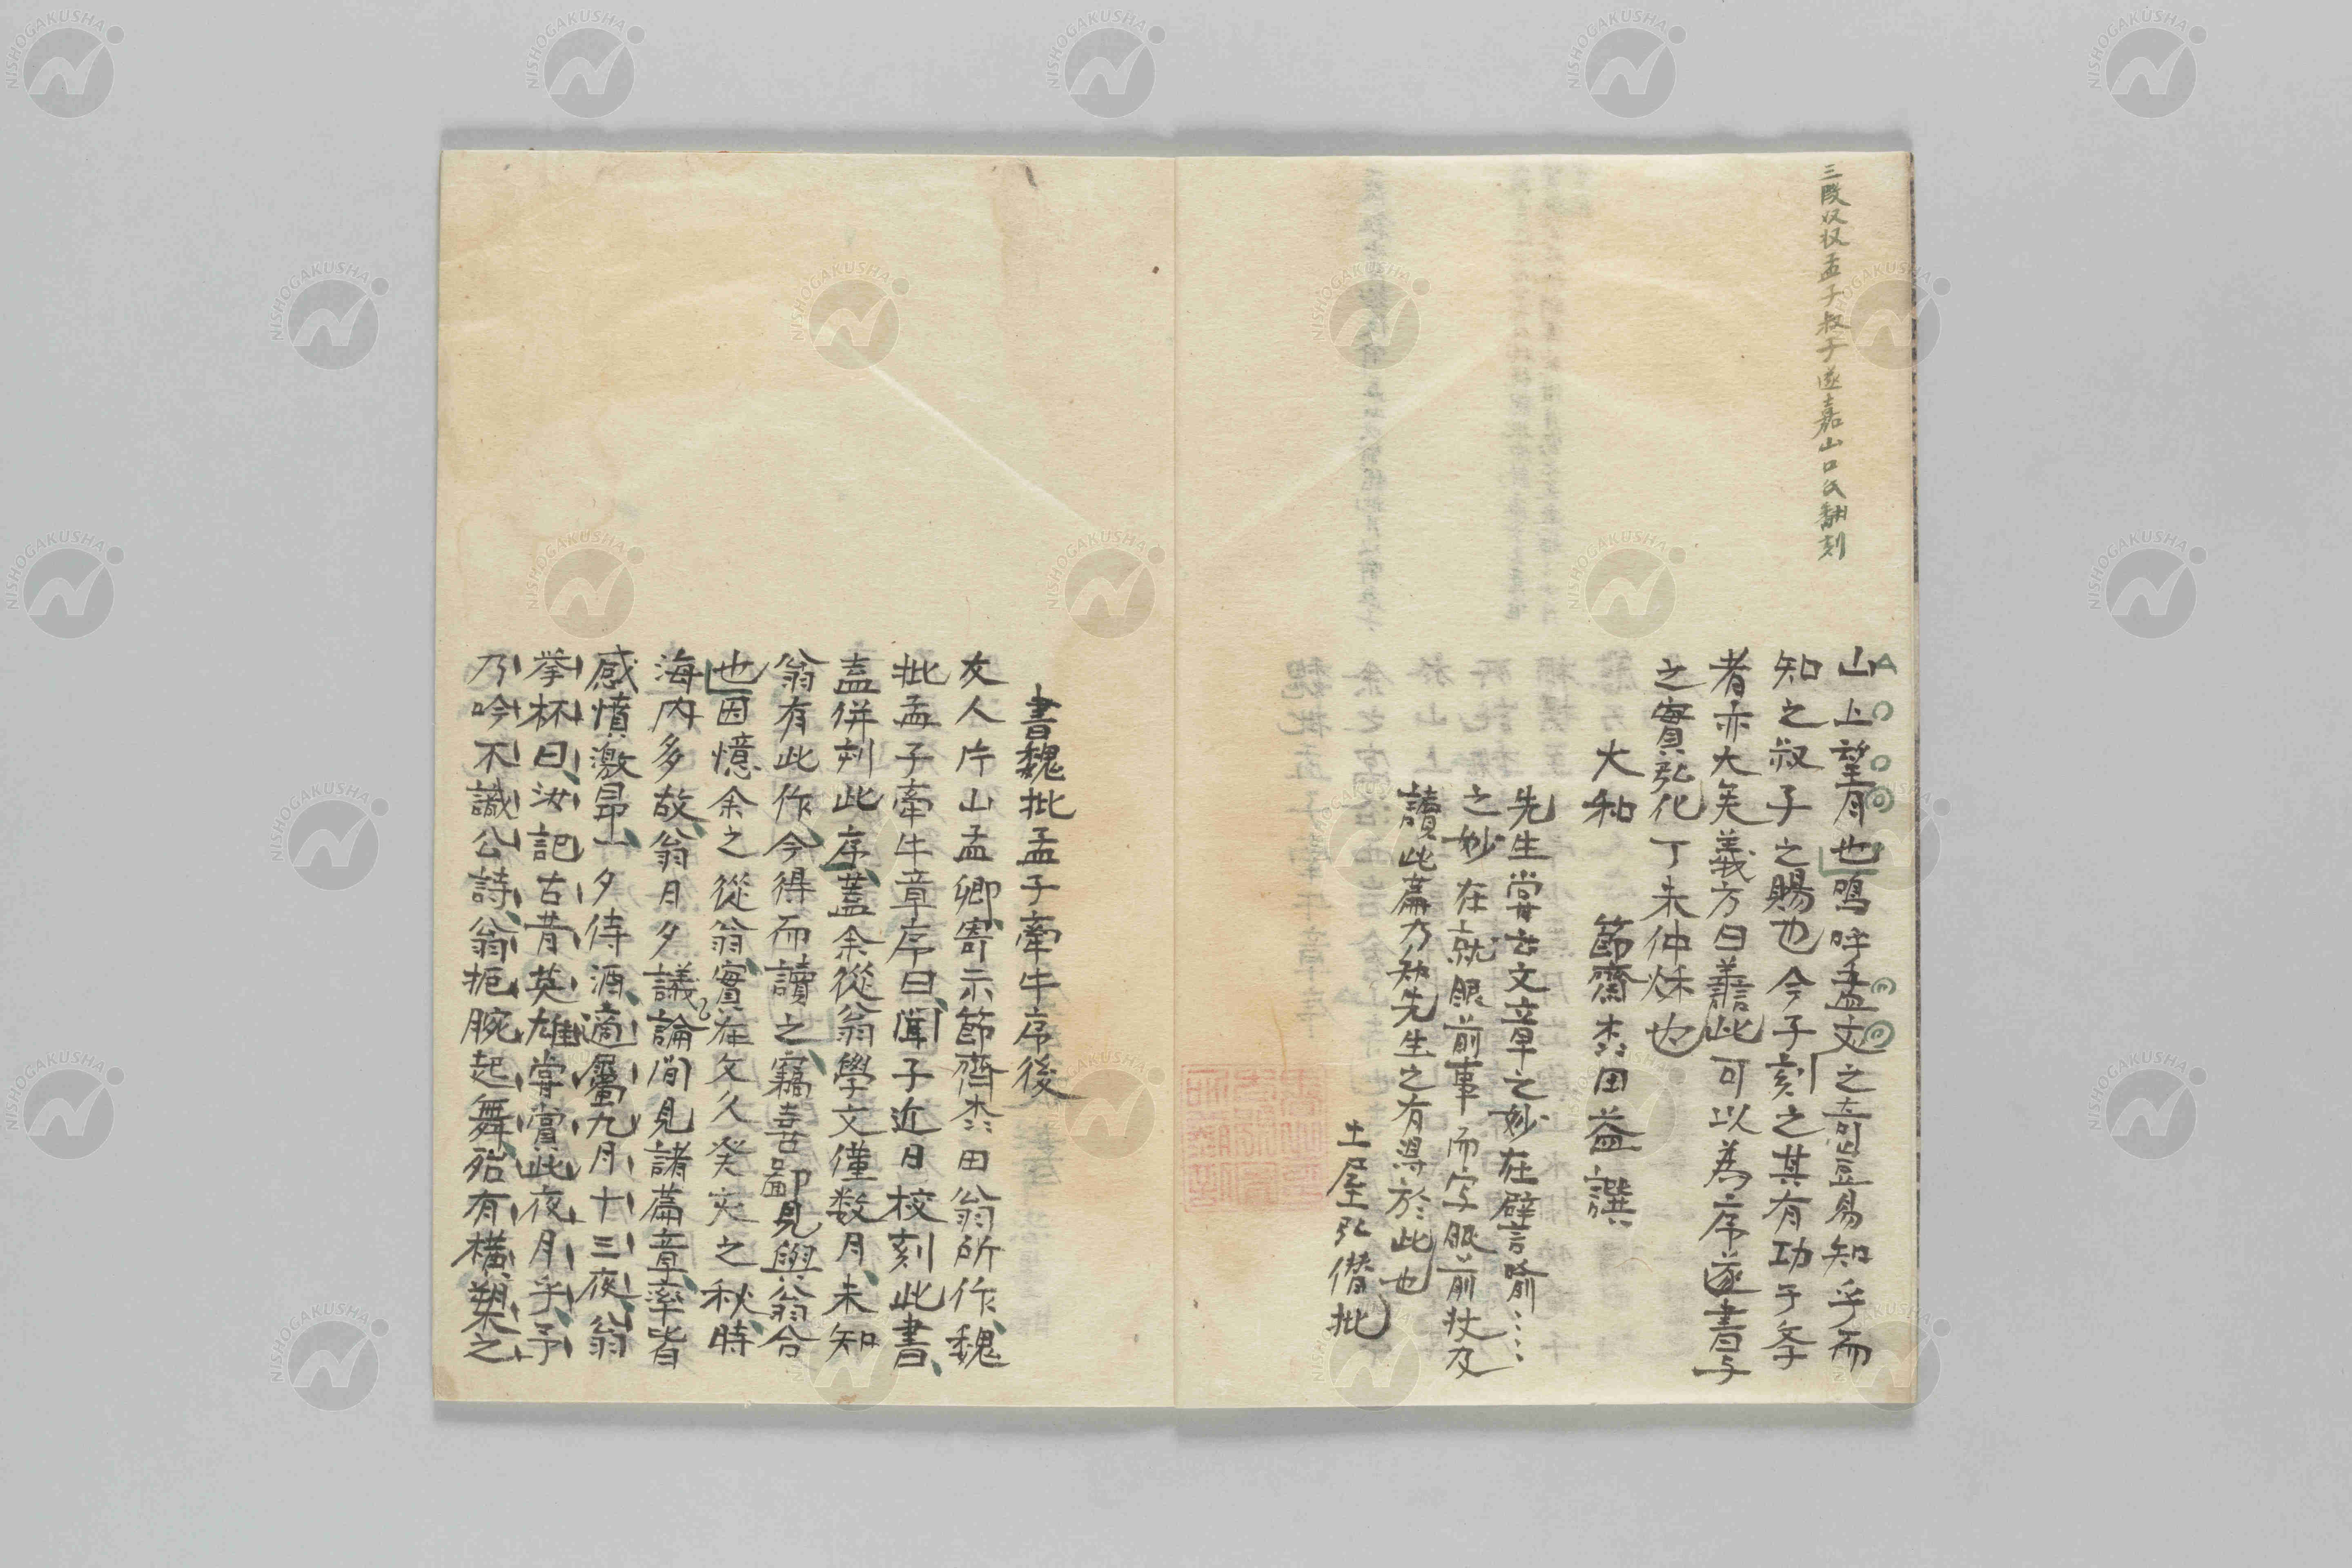 三段双収孟子叔子遂嘉山口氏翻刻
山上望月也嗚呼孟文之奇豈易知乎而
知之叔子之賜也今子刻之其有功于条
者亦大矣義方曰善此可以為序遂書与
之實弘化丁未仲秋也
大和 節齋森田益譔
先生嘗云文章之妙在譬言喻……
之妙在就眼前事而写眼前状及
讀此篇乃知先生之有得於此也
土屋弘僭批
書魏批孟子牽牛序後
友人片山孟卿寄示節齊森田翁所作魏
批孟子牽牛章序曰聞子近日校刻此書
盍併刻此序蓋余從翁學文僅数月未知
翁有此作今得而讀之竊喜鄙見與翁合
也因憶余之從翁實在文久癸亥之秋時
海内多故翁月夕議論間見諸篇章率皆
感憤激昂一夕侍酒適屬九月十三夜翁
挙杯曰汝記古昔英雄嘗賞此夜月乎予
乃吟不識公詩翁扼腕起舞殆有横槊之